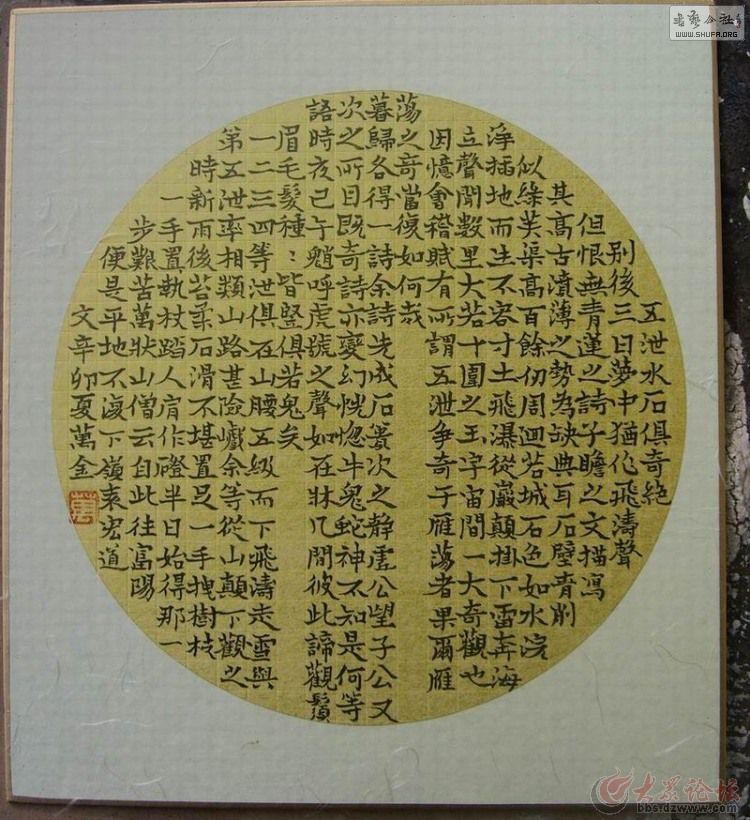 五泄水石俱奇絕
别後三日夢中猶作飛濤聲
但恨無青蓮之詩子瞻之文描寫
其高古濆薄之勢為缺典耳石壁青削
似綠芙渠高百餘仞周迴若城石色如水浣
淨插地而生不容寸土飛瀑從巖巔掛下雷奔海
立聲聞數里大若十圍之玉宇宙間一大奇觀也
因憶會稽賦有所謂五泄争奇于雁蕩者果爾雁
蕩之奇當復如何哉
暮歸各得一詩余詩先成石簣次之静虛公望子公又
次之所目既奇詩亦變幻恍惚牛鬼蛇神不知是何等
語時夜已午魈呼虎號之聲如在牀几間彼此諦觀鬚
眉毛髮種：皆竪俱若鬼矣
一二三四等泄俱在山腰五級而下飛濤走雪與
第五泄率相類山路甚險巇余等從山巔下觀之
時新雨後苔柔石滑不堪置足一手拽樹枝
一手置執杖踏人肩作磴半日始得那一
步艱苦萬狀山僧云自此往富陽
便是平地不復下嶺袁宏道
文辛卯夏萬金
萬
WWW.SHUFA.ORG
大眾论坛
bbs.dzwww.com